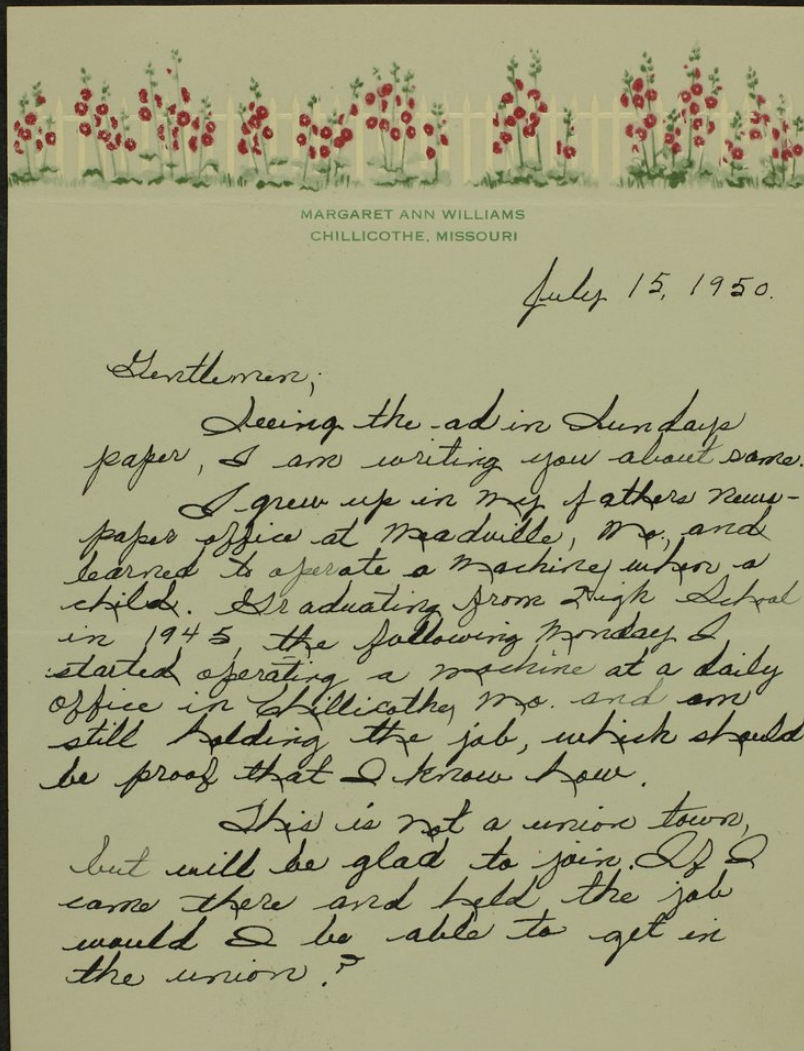 MARGARET ANN WILLIAMS
CHILLICOTHE, MISSOURI
July 15, 1950.
Gentlemen;
Seeing the ad in Sundays
paper, I am writing you about same.
I grew up in my fathers news-
paper office at Meadville, Mo., and
learned to operate a machine when a
child. Graduating from High School
in 1945, the following Monday I
started operating a machine at a daily
office in Chillicothe, Mo. and am
still holding the job, which should
be proof that I know how.
This is not a union town,
but will be glad to join. If I
came there and held the job
would I be able to get in
the union?